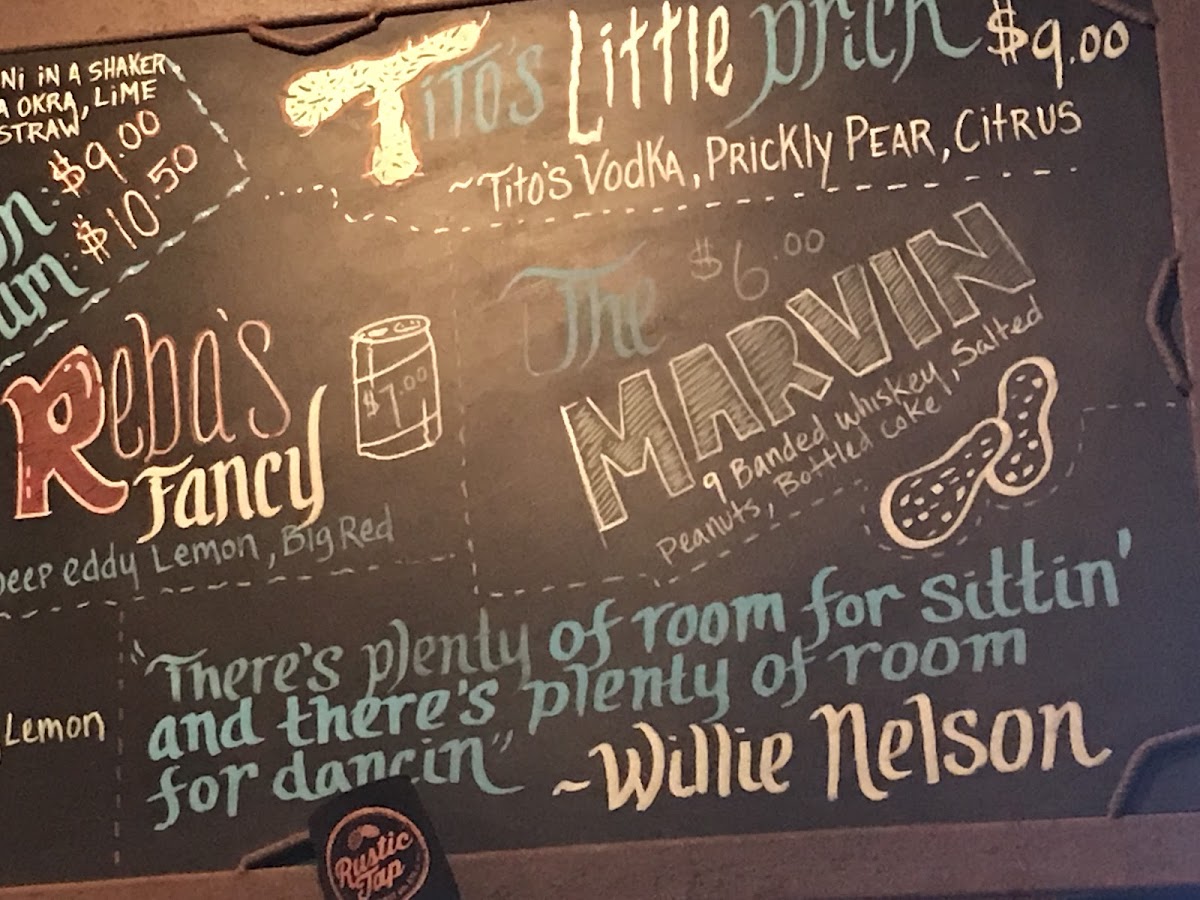 Ni iN A SHAKER
A OKRA, LiME
STRAW
$9.00
$10.50
Tito's Little prick $9.00
~Tito's Vodka, Prickly Pear, Citrus
The $6.00
MARVIN
9 Banded whiskey, Salted
Peanuts, Bottled coke
Reba's
Fancy
$7.00
Deep eddy Lemon, Big Red
Lemon
"There's plenty of room for sittin'
and there's plenty of room
for dancin" ~Willie Nelson
Rustic
Tap